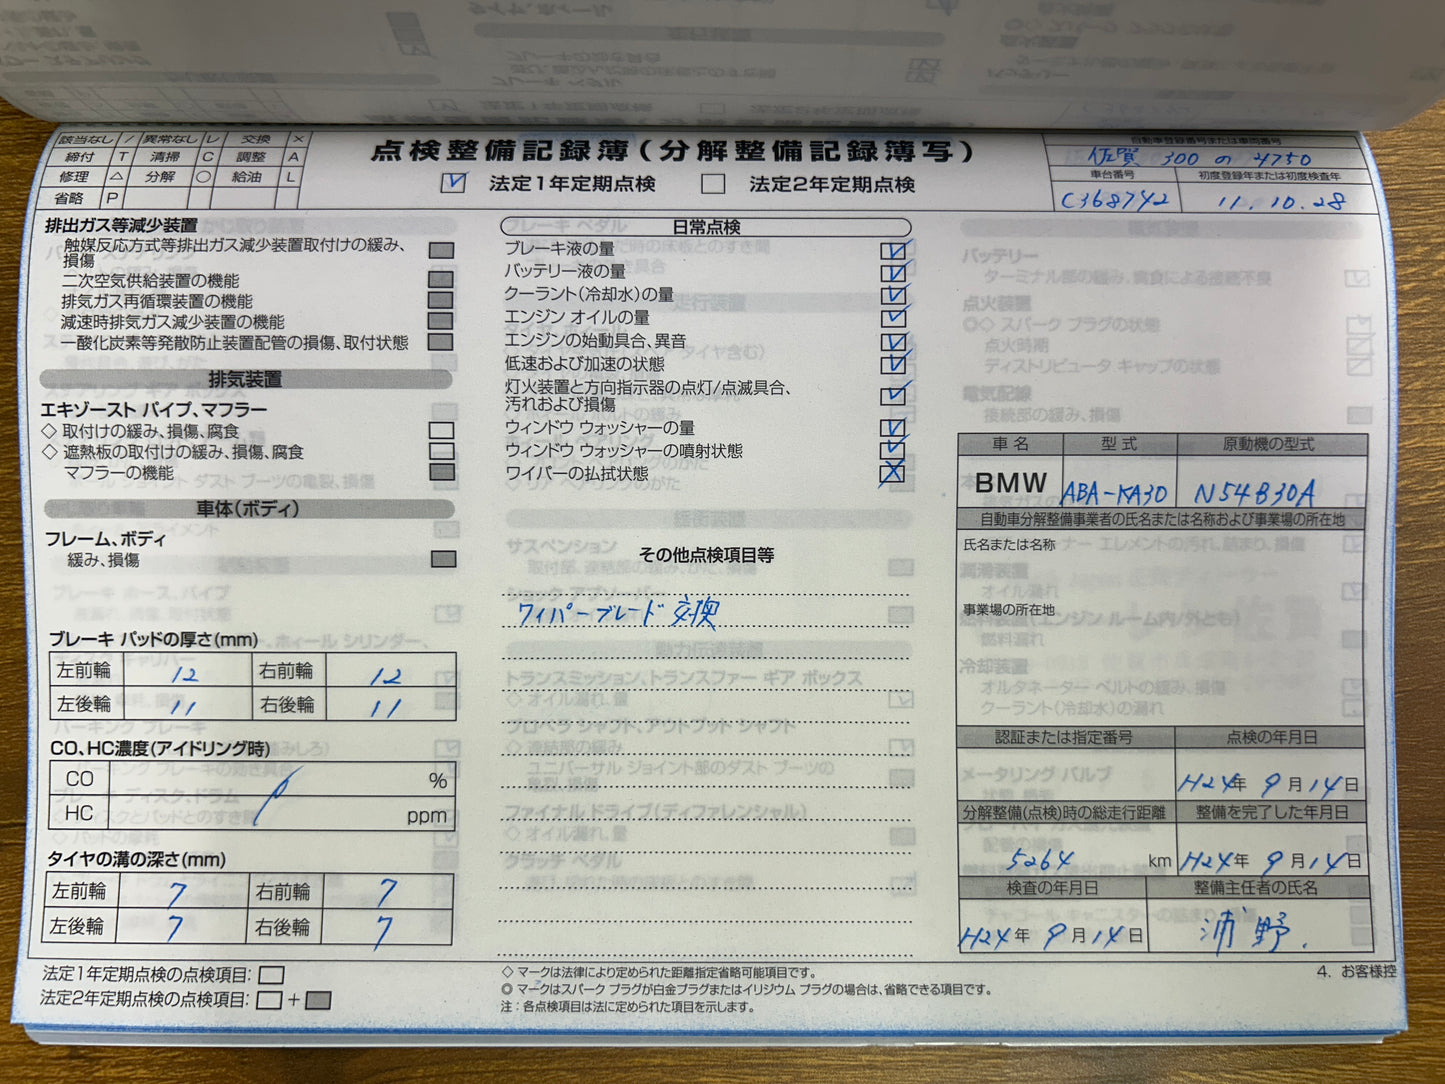 該当なし / 異常なし レ 交換 ×
締付 T 清掃 C 調整 A
修理 △ 分解 ○ 給油 L
省略 P
点検整備記録簿(分解整備記録簿写)
法定1年定期点検 法定2年定期点検
自動車登録番号または車両番号
佐賀 300 の 4750
車台番号 初度登録年または初度検査年
C368742 11.10.28
排出ガス等減少装置
触媒反応方式等排出ガス減少装置取付けの緩み、
損傷
二次空気供給装置の機能
排気ガス再循環装置の機能
減速時排気ガス減少装置の機能
一酸化炭素等発散防止装置配管の損傷、取付状態
排気装置
エキゾースト パイプ、マフラー
◇ 取付けの緩み、損傷、腐食
◇ 遮熱板の取付けの緩み、損傷、腐食
マフラーの機能
車体(ボディ)
フレーム、ボディ
緩み、損傷
ブレーキ パッドの厚さ(mm)
左前輪 12 右前輪 12
左後輪 11 右後輪 11
CO、HC濃度(アイドリング時)
CO %
HC ppm
タイヤの溝の深さ(mm)
左前輪 7 右前輪 7
左後輪 7 右後輪 7
日常点検
ブレーキ液の量
バッテリー液の量
クーラント(冷却水)の量
エンジン オイルの量
エンジンの始動具合、異音
低速および加速の状態
灯火装置と方向指示器の点灯/点滅具合、
汚れおよび損傷
ウィンドウ ウォッシャーの量
ウィンドウ ウォッシャーの噴射状態
ワイパーの払拭状態
その他点検項目等
ワイパーブレード 交換
車 名 型 式 原動機の型式
BMW ABA-KA30 N54B30A
自動車分解整備事業者の氏名または名称および事業場の所在地
氏名または名称
事業場の所在地
認証または指定番号 点検の年月日
H24年 9月14日
分解整備(点検)時の総走行距離 整備を完了した年月日
5264 km H24年 9月14日
検査の年月日 整備主任者の氏名
H24年 9月14日 浦野.
法定1年定期点検の点検項目:
法定2年定期点検の点検項目: +
◇ マークは法律により定められた距離指定省略可能項目です。
◎ マークはスパーク プラグが白金プラグまたはイリジウム プラグの場合は、省略できる項目です。
注:各点検項目は法に定められた項目を示します。
4. お客様控